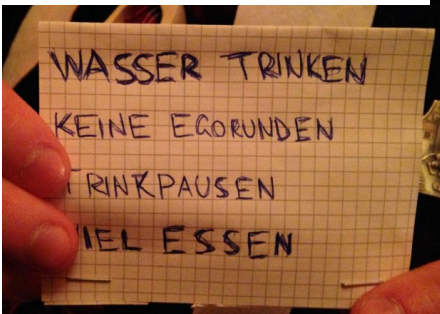 WASSER TRINKEN
KEINE EGORUNDEN
TRINKPAUSEN
VIEL ESSEN